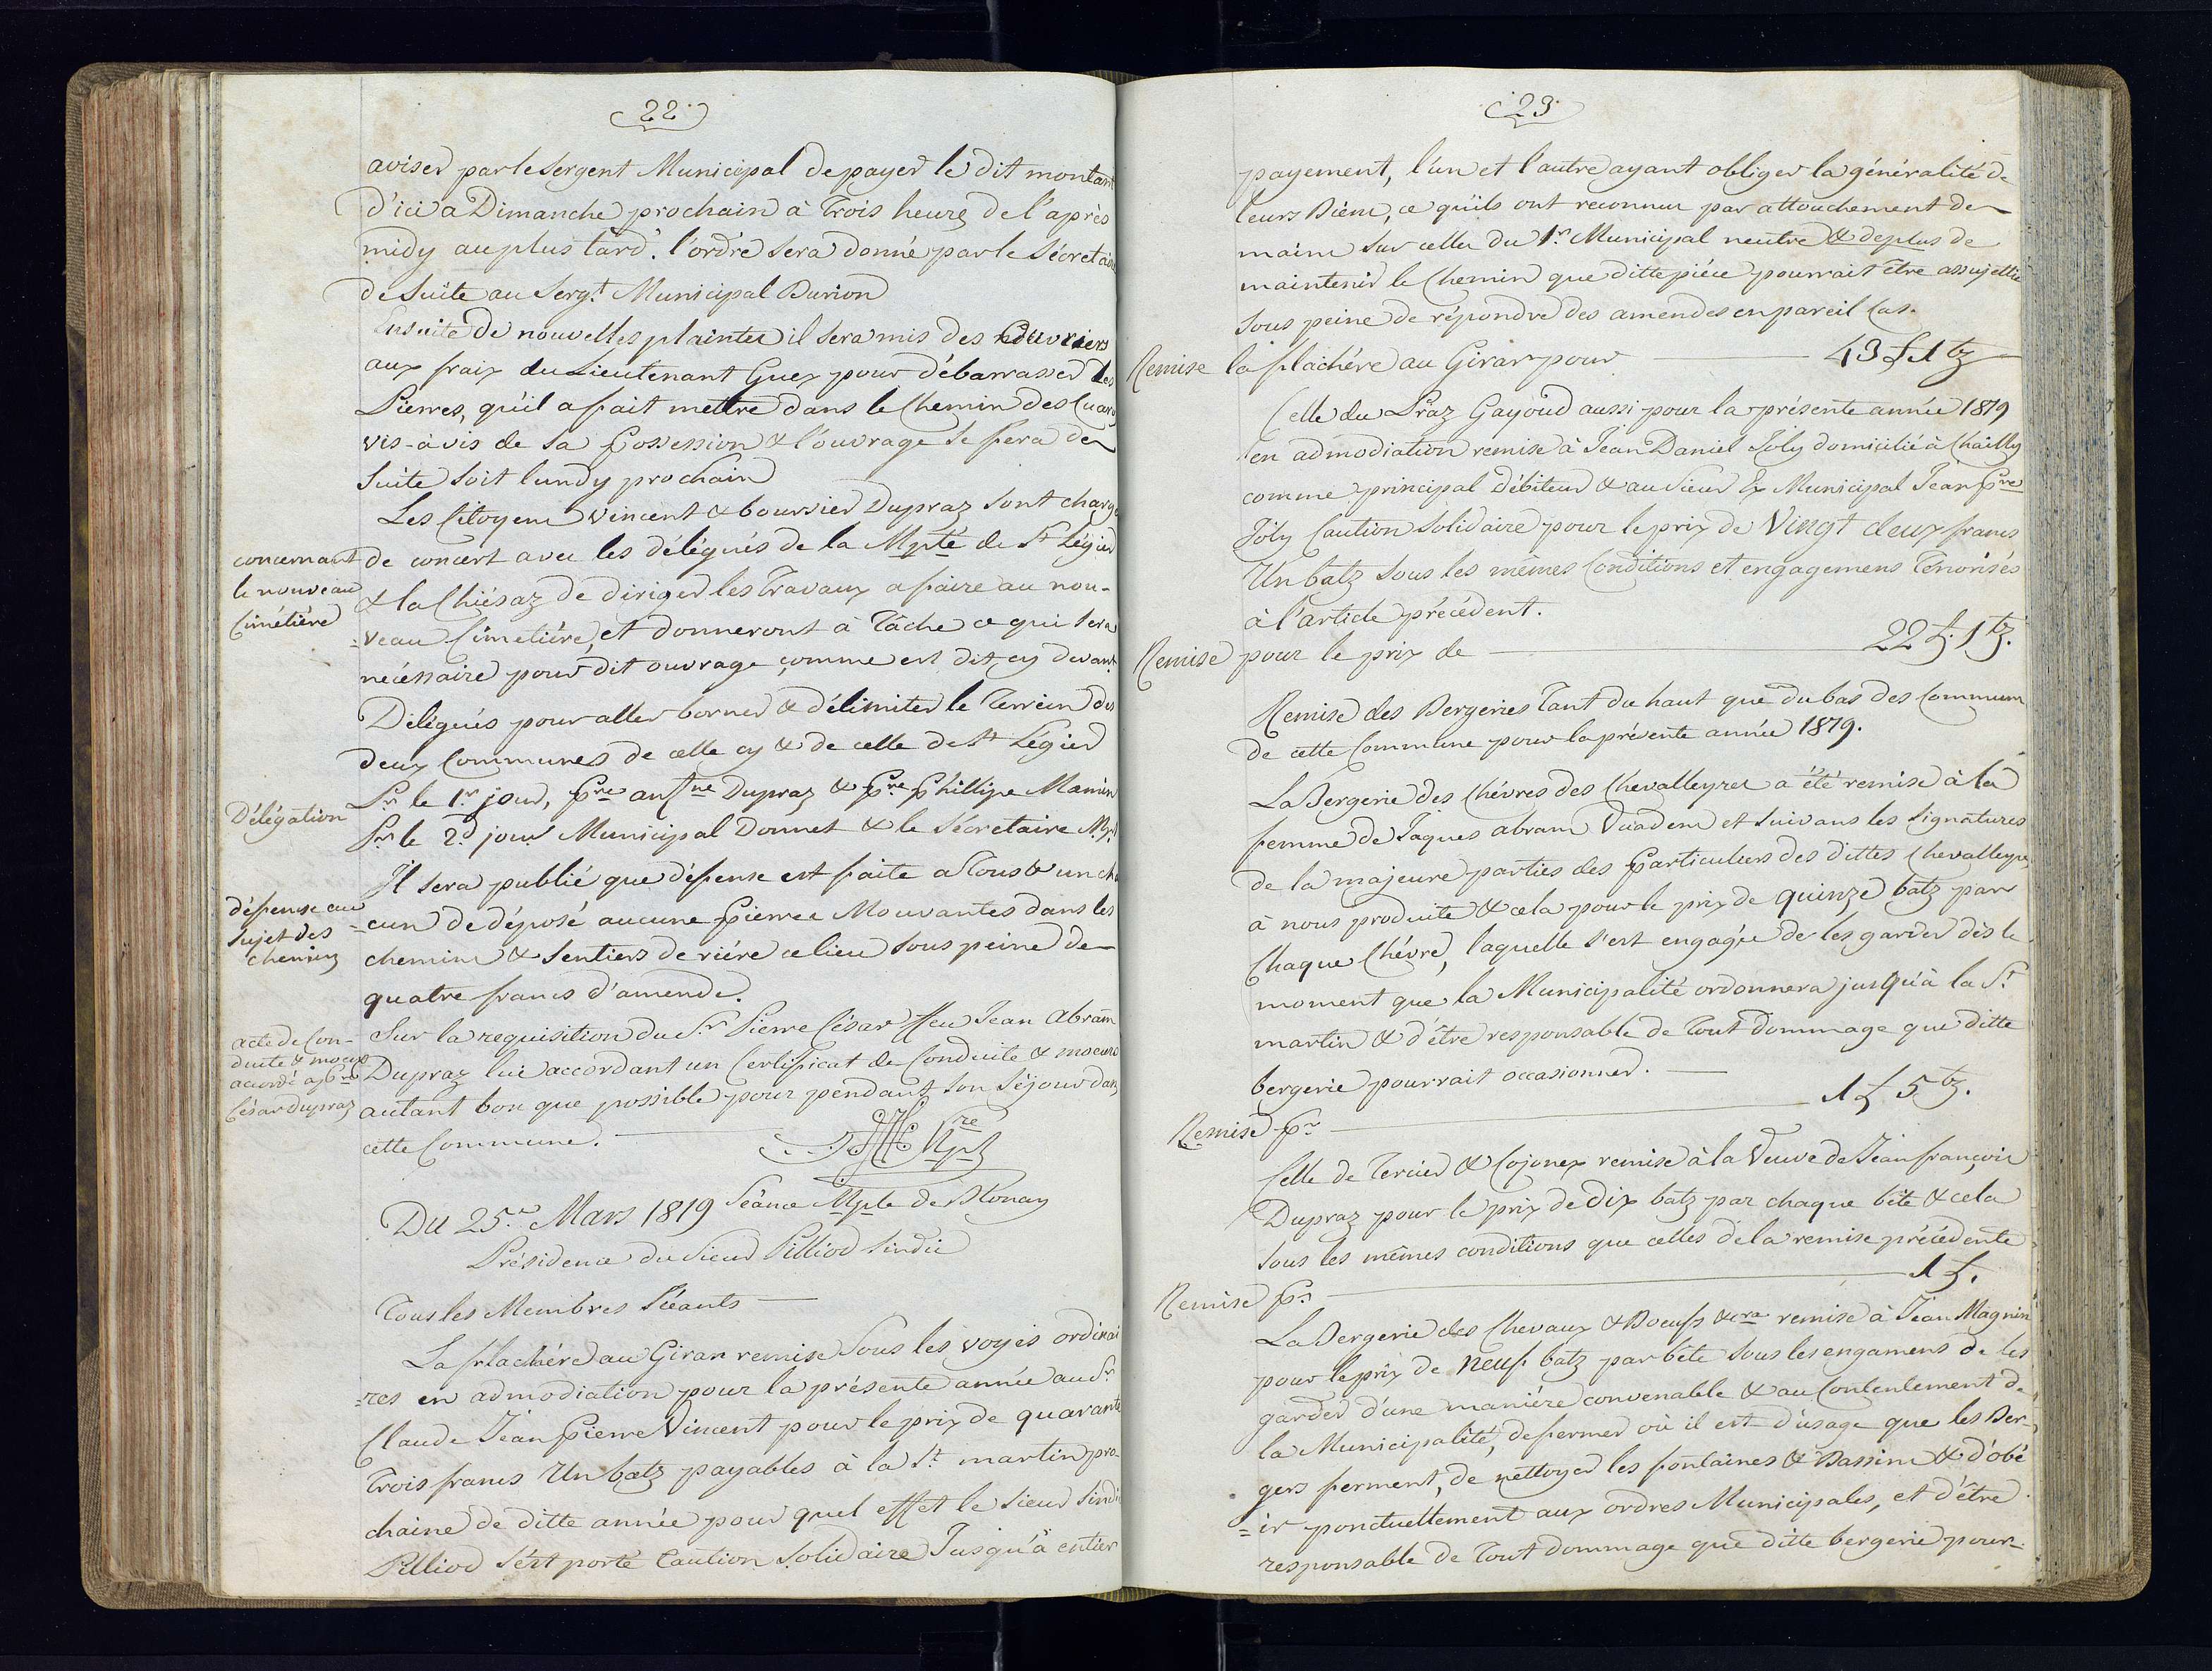 22.
aviser par le Sergent Municipal de payer le dit montant
d'ici a Dimanche prochain à Trois heures de l'après
midy au plus tard. l'ordre sera donné par le Sécretaire
de Suite au Sergt Municipal Burion
Ensuite de nouvelles plaintes il sera mis des Ouvriers
aux fraix du Lieutenant Guex pour débarrasser les
Pierres, qu'il a fait mettre dans le Chemin des
vis-à-vis de sa Possession & l'ouvrage se fera de
Suite soit lundy prochain
Les Citoyens Vincent & boursier Dupraz sont chargé
concernant
le nouveau
Cimétiére
de concert avec les délégués de la Mpté de St Légier
& la Chiésaz de diriger les Travaux a faire au nou-
=veau Cimetiére, et donneront à Tâche ce qui sera
nécéssaire pour dit ouvrage comme est dit cy devant
Délégués pour aller borner & délimiter le Terrein des
deux Communes de celle cy & de celle de St Légier
Délégation
Pr le 1r jour, Pre antne Dupraz & Pre Phillipe Mamin
Pr le 2d jour Municipal Donnet & le Sécretaire Mpl
Il sera publié que défense est faite a Tous & un cha
défense au
sujet des
chemins
=cun de déposé aucune Pierres Mouvantes dans les
chemins & Sentiers de riére ce lieu sous peine de
quatre francs d'amende.
acte de Con-
duite & moeurs
accordé a Pre
César Dupraz
Sur la requisition du Sr Pierre César ffeu Jean Abram
Dupraz lui accordant un Certificat de Conduite & moeurs
autant bon que possible pour pendant son Séjour dans
cette Commune.
Du 25e Mars 1819 Séance Mple de Blonay
Présidence du Sieur Pilliod Sindic
Tous les Membres Séants
La flachére au Giran remise Sous les voyes ordinai
=res en admodiation pour la présente année au Sr
Claude Jean Pierre Vincent pour le prix de quarante
Trois francs Un batz payables à la St martin pro-
chaine de ditte année pour quel effet le Sieur Sindic
Pilliod s'est porté Caution Solidaire Jusqu'à entier
23.
payement, l'un et l'autre ayant obliger la généralité de
leurs Biens, ce qu'ils ont reconnus par attouchement de
mains sur celles du 1r Municipal neutre & deplus de
maintenir le Chemin que ditte piéce pourrait être assujettie
sous peine de répondre des amendes en pareil Cas.
Remise la flachére au Giran pour 43 f 1 bz
Celle du Praz Gayoud aussi pour la présente année 1819
en admodiation remise à Jean Daniel Joly domicilié à Chailly
comme principal Débiteur & au Sieur Ex Municipal Jean Pre
Joly Caution Solidaire pour le prix de Vingt deux francs
Un batz sous les mêmes Conditions et engagemens Ténorisés
à l'article précédent.
Remise pour le prix de 22 f. 1 bz.
Remise des Bergeries Tant du haut que du bas des Communs
de cette Commune pour la présente année 1819.
La Bergerie des Chévres des Chevalleyres a été remise à la
femme de Jaques abram Vuadens et suivans les Signatures
de la majeure parties des Particuliers des dittes Chevalleyres
à nous produite & cela pour le prix de quinze batz par
Chaque Chévre, laquelle s'est engagée de les garder dès le
moment que la Municipalité ordonnera jusqu'à la St
martin & d'être responsable de Tout Dommage que ditte
bergerie pourrait occasionner.
Remise Pr 1 f 5 bz.
Celle de Tercier & Cojonex remise à la Veuve de Jean françois
Dupraz pour le prix de Dix batz par chaque bête & cela
sous les mêmes conditions que celles de la remise précédente
Remise Pr 1 f.
La Bergerie des Chevaux & Boeufs &cra remise à Jean Magnin
pour le prix de Neuf batz par bête sous les engamens de les
garder d'une maniére convenable & au Contentement de
la Municipalité, de fermer où il est d'usage que les Ber-
gers ferment, de nettoyer les fontaines & Bassins & d'obé
=ir ponctuellement aux ordres Municipales, et d'être
responsable de Tout dommage que ditte bergerie pour-